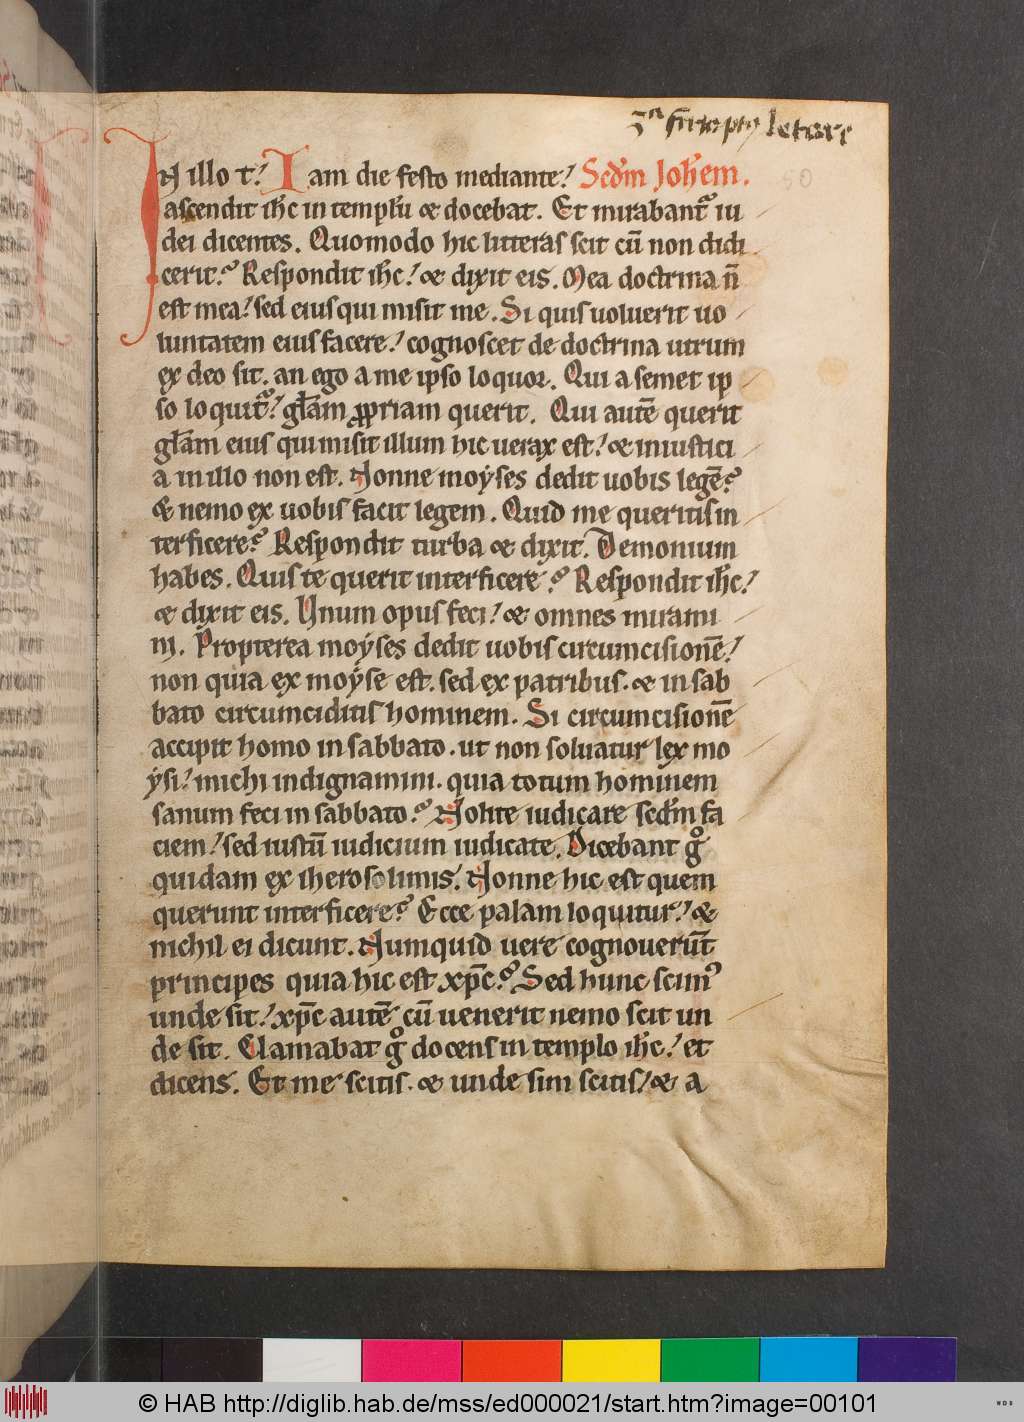 3ᵃ feria post letare
IN illo t̄. Iam die festo mediante. Scdm Joh̄em.
ascendit ih̄c in templū & docebat. Et mirabant᷑ iu
dei dicentes. Quomodo hic litteras scit cū non didi
cerit? Respondit ih̄c. & dixit eis. Mea doctrina n̄
est mea. sed eius qui misit me. Si quis uoluerit uo
luntatem eius facere. cognoscet de doctrina utrum
ex deo sit. an ego a me ipso loquor. Qui a semet ip
so loquit᷑. gl̄am ꝓpriam querit. Qui autē querit
gl̄am eius qui misit illum hic uerax est. & iniustici
a in illo non est. Nonne moẏses dedit uobis legē?
& nemo ex uobis facit legem. Quid me queritis in
terficere? Respondit turba & dixit. Demonium
habes. Quis te querit interficere? Respondit ih̄c.
& dixit eis. Unum opus feci. & omnes mirami
ni. Propterea moẏses dedit uobis circumcisionē.
non quia ex moẏse est. sed ex patribus. & in sab
bato circumciditis hominem. Si circumcisionē
accipit homo in sabbato. ut non soluatur lex mo
ẏsi. michi indignamini. quia totum hominem
sanum feci in sabbato? Nolite iudicare scdm fa
ciem. sed iustū iudicium iudicate. Dicebant gͦ
quidam ex iherosolimis. Nonne hic est quem
querunt interficere? Ecce palam loquitur. &
nichil ei dicunt. Numquid uere cognouerūt
principes quia hic est xp̄c? Sed hunc scimꝰ
unde sit. xp̄c autē cū uenerit nemo scit un
de sit. Clamabat gͦ docens in templo ih̄c. et
dicens. Et me scitis. & unde sim scitis. & a
© HAB http://diglib.hab.de/mss/ed000021/start.htm?image=00101